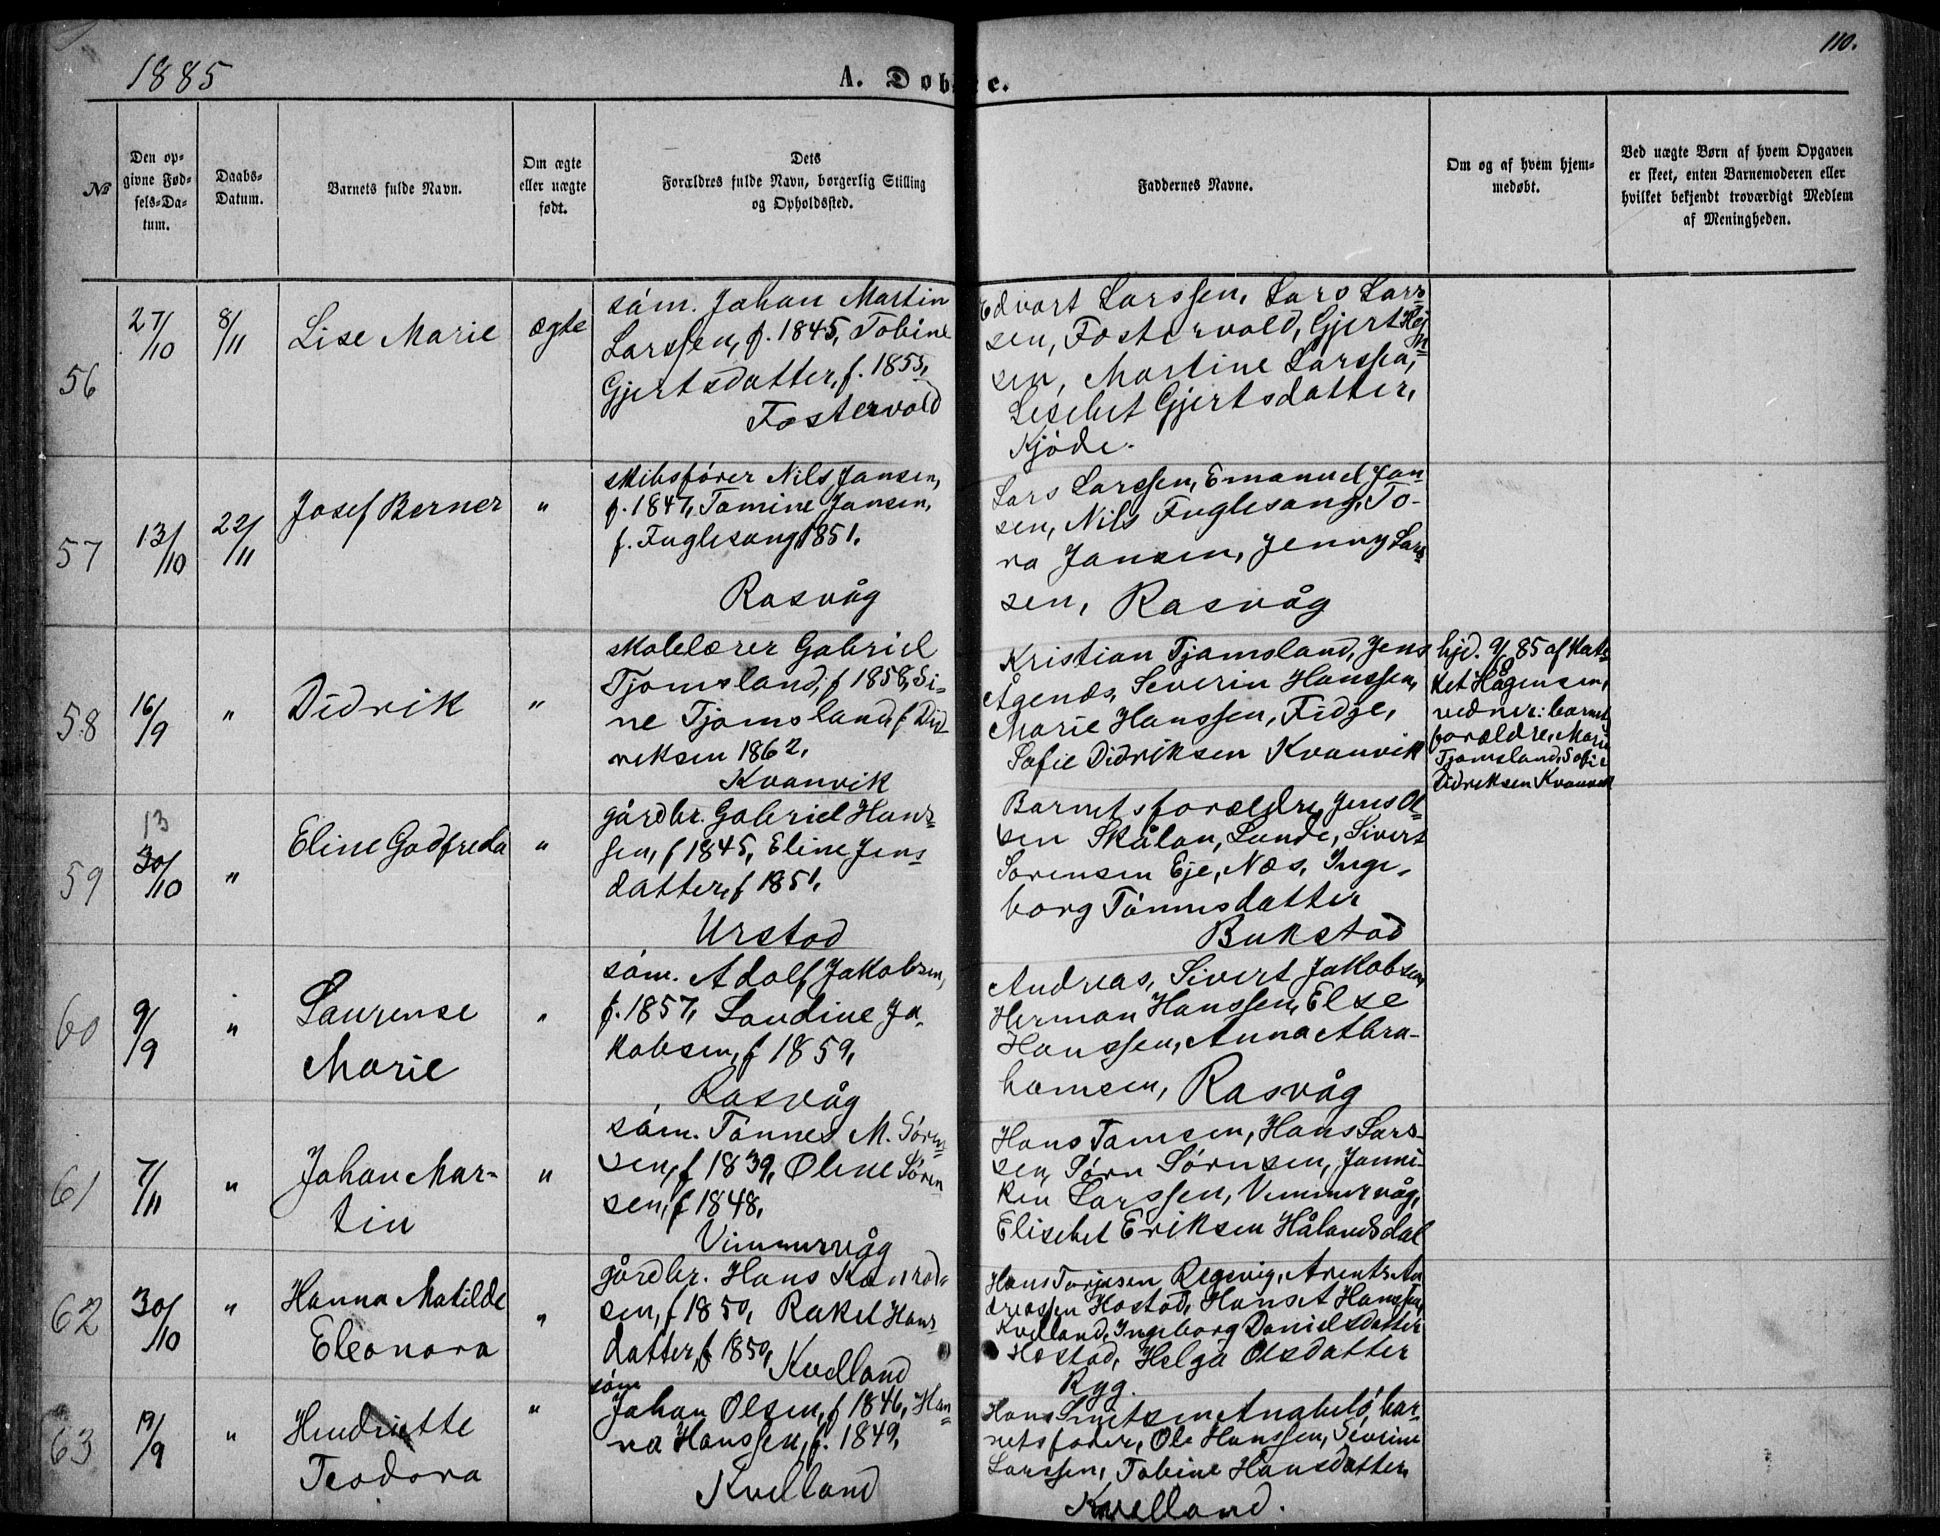 110.
1885
A. Døbte.
№
Den op-
givne Fød-
sels-Da-
tum.
Daabs-
Datum.
Barnets fulde Navn.
Om ægte
eller uægte
født.
Dets
Forældres fulde Navn, borgerlig Stilling
og Opholdssted.
Faddernes Navne.
Om og af hvem hjem-
medøbt.
Ved uægte Børn af hvem Opgaven
er skeet, enten Barnemoderen eller
hvilket bekjendt troværdigt Medlem
af Menigheden.
56
27/10
8/11
Lise Marie
ægte
søm. Johan Martin
Larssen, f. 1845, Tobine
Gjertsdatter, f. 1855,
Fostervold
Edvart Larssen, Lars Lars-
sen, Fostervold, Gjert
sen, Martine Larssen,
Lisebet Gjertsdatter,
Kjøde.
57
13/10
22/11
Josef Berner
"
skibsfører Nils Jansen,
f. 1847, Tomine Jansen,
f. Fuglesang 1851.
Rasvåg
Lars Larssen, Emanuel Jan-
sen, Nils Fuglesang, To-
ra Jansen, Jenny Lars-
sen, Rasvåg
58
16/9
"
Didrik
"
skolelærer Gabriel
Tjomsland, f 1858, Si-
ne Tjomsland, f Did-
riksen 1862,
Kvanvik
Kristian Tjomsland, Jens
Ågenes, Severin Hanssen,
Marie Hanssen, Fidje,
Sofie Didriksen Kvanvik
hjd. 85 af Kate-
ket Hågensen,
vidner: barnets
forældre, Marie
Tjomsland, Sofie
Didriksen Kvanvik
59
13
30/10
"
Eline Godfreda
"
gårdbr. Gabriel Hans-
sen, f 1845, Eline Jens-
datter, f 1851,
Urstad
Barnets forældre, Jens Ol-
sen Skålan, Lunde, Sivert
Sørensen Eje, Næs, Inge-
borg Tønnesdatter
Bukstad
60
9/9
"
Laurense
Marie
"
søm. Adolf Jakobsen,
f. 1857, Landine Ja-
kobsen, f 1859,
Rasvåg
Andreas, Sivert Jakobsen,
Herman Hanssen, Else
Hanssen, Anna Abra-
hamsen, Rasvåg
61
7/11
"
Johan Mar-
tin
"
søm. Tønnes M. Søren-
sen, f 1839, Oline Søren-
sen, f 1848,
Vimmervåg
Hans Tomsen, Hans Lars-
sen, Sørn Sørnsen, Janni-
ken Larssen, Vimmervåg,
Elisebet Eriksen Hålandsdal
62
30/10
"
Hanna Matilde
Eleonora
"
gårdbr. Hans Konrad-
sen, f 1850, Rakel Hans-
datter, f 1850,
Kvelland
Hans Torjusen Regevig, Arents An-
dreassen Hostad, Hans Hanssen,
Kvelland, Ingeborg Danielsdatter
Hostad, Helga Olsdatter
Ryg.
63
19/9
"
Hendriette
Teodora
"
søm
Johan Olsen, f 1846, Han-
na Hanssen, f. 1849,
Kvelland
Hans Anabelø, bar-
nets fader, Ole Hanssen, Severine
Larssen, Tobine Hansdatter
Kvelland.